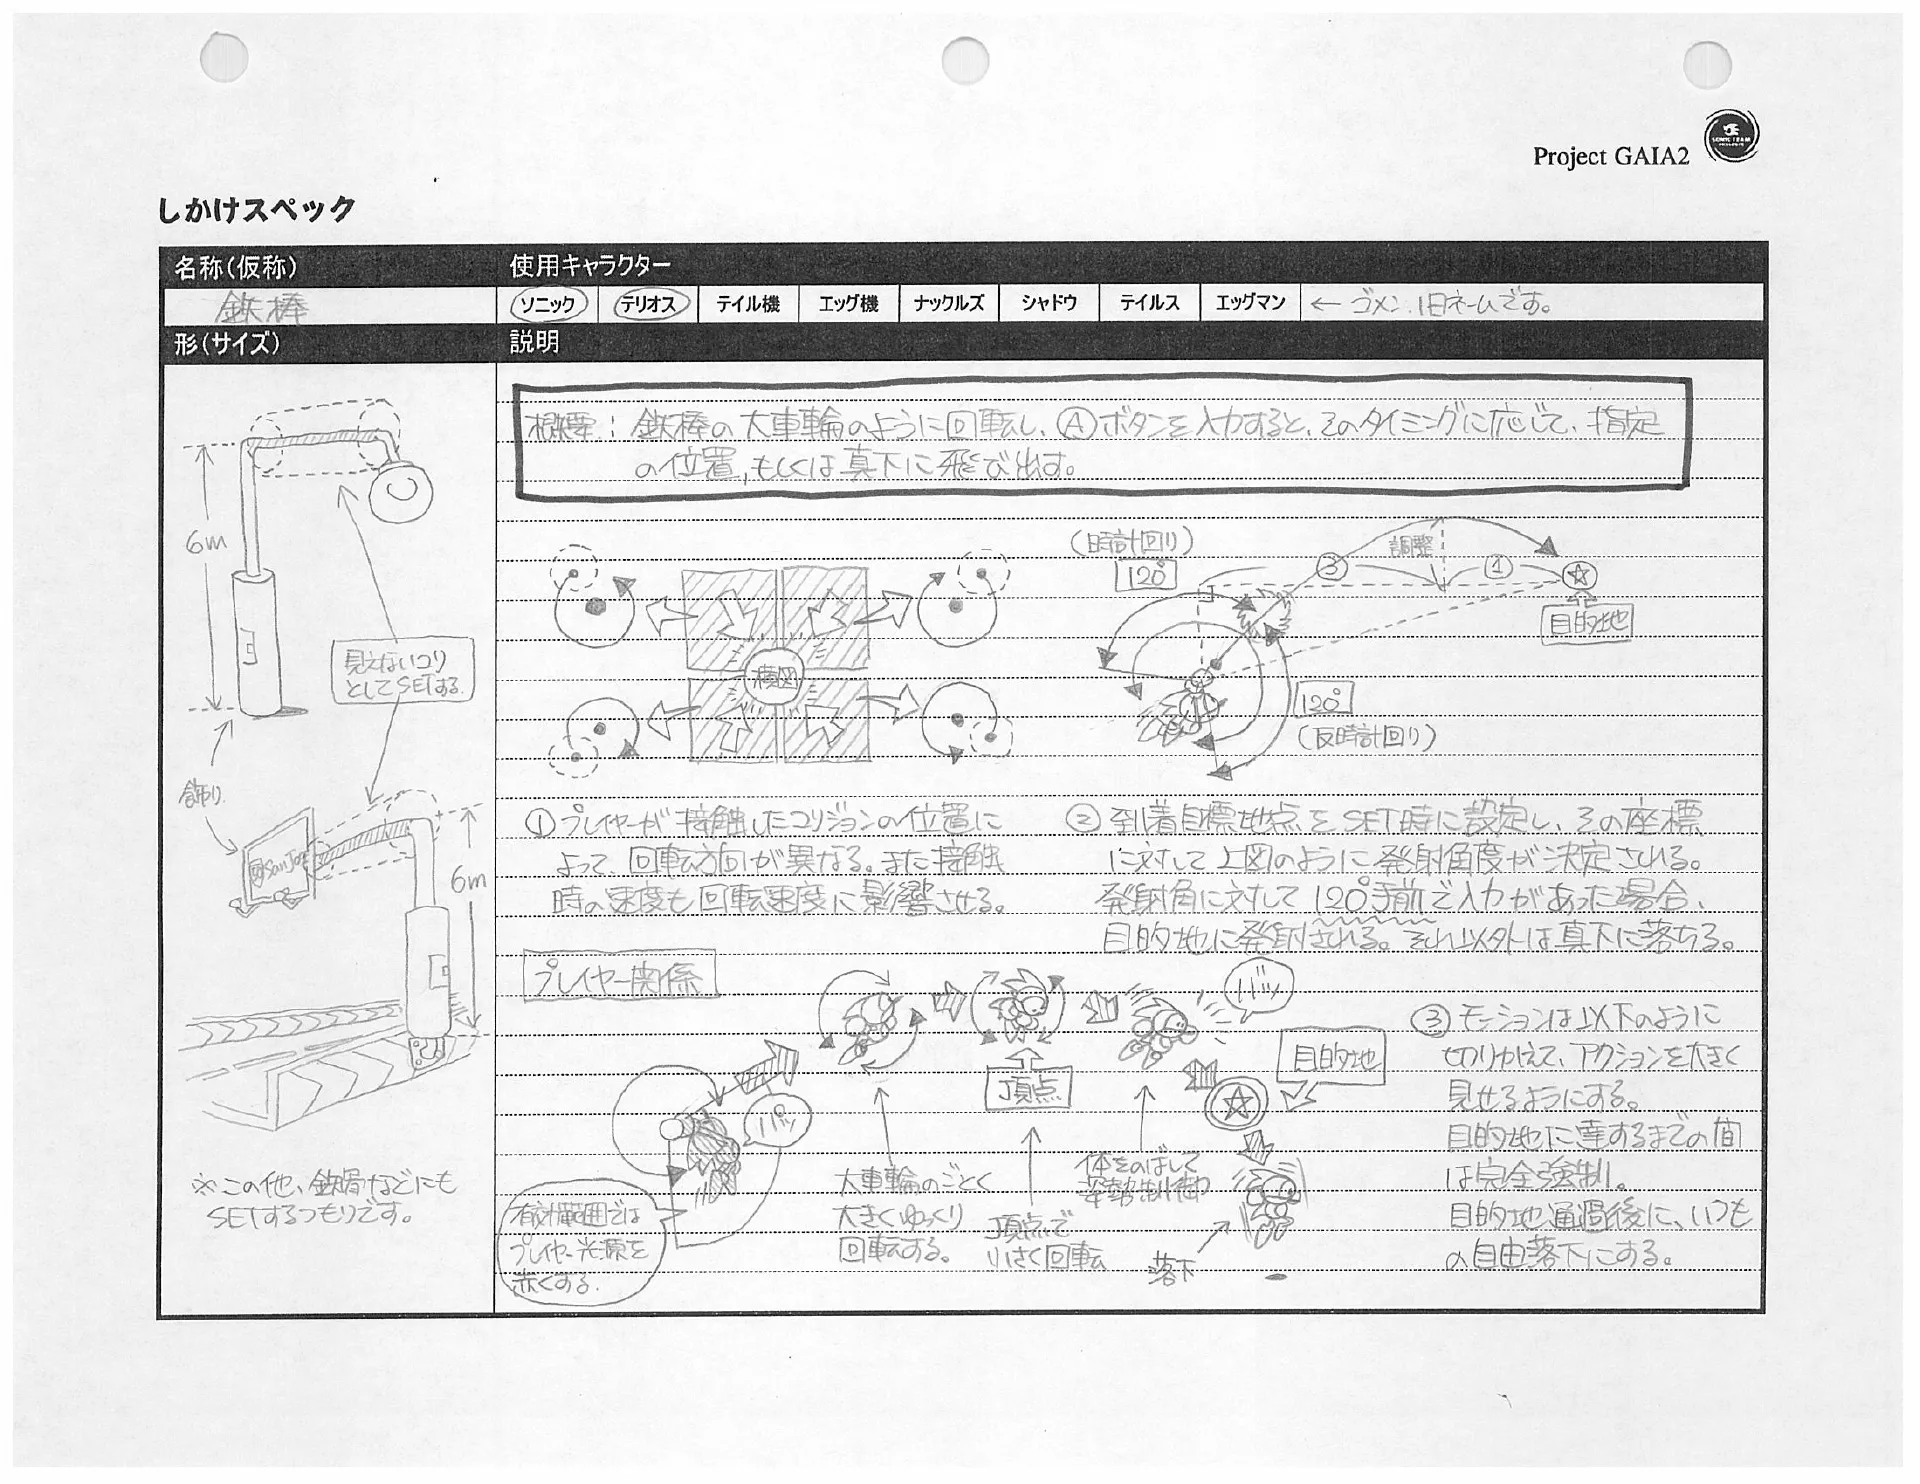 Project GAIA2
SONIC TEAM
しかけスペック
名称(仮称)
使用キャラクター
鉄棒
ソニック
テリオス
テイル機
エッグ機
ナックルズ
シャドウ
テイルス
エッグマン
← ゴメン、旧ネームです。
形(サイズ)
説明
6m
見えないコリ
としてSETする。
飾り
6m
※この他、鉄骨などにも
SETするつもりです。
概要:鉄棒の大車輪のように回転し、Ⓐボタンを入力すると、そのタイミングに応じて、指定
の位置、もしくは真下に飛び出す。
横図
(時計回り)
120°
調整
③
①
目的地
120°
(反時計回り)
①プレイヤーが接触したコリジョンの位置に
よって、回転方向が異なる。また接触
時の速度も回転速度に影響させる。
②到着目標地点をSET時に設定し、その座標
に対して上図のように発射角度が決定される。
発射角に対して120°手前で入力があった場合、
目的地に発射される。それ以外は真下に落ちる。
プレイヤー関係
パッ
頂点
バッ
目的地
有効範囲では
プレイヤー光源を
赤くする。
大車輪のごとく
大きくゆっくり
回転する。
頂点で
小さく回転
体をのばして
姿勢制御
落下
③モーションは以下のように
切りかえて、アクションを大きく
見せるようにする。
目的地に達するまでの間
は完全強制。
目的地通過後に、いつも
の自由落下にする。